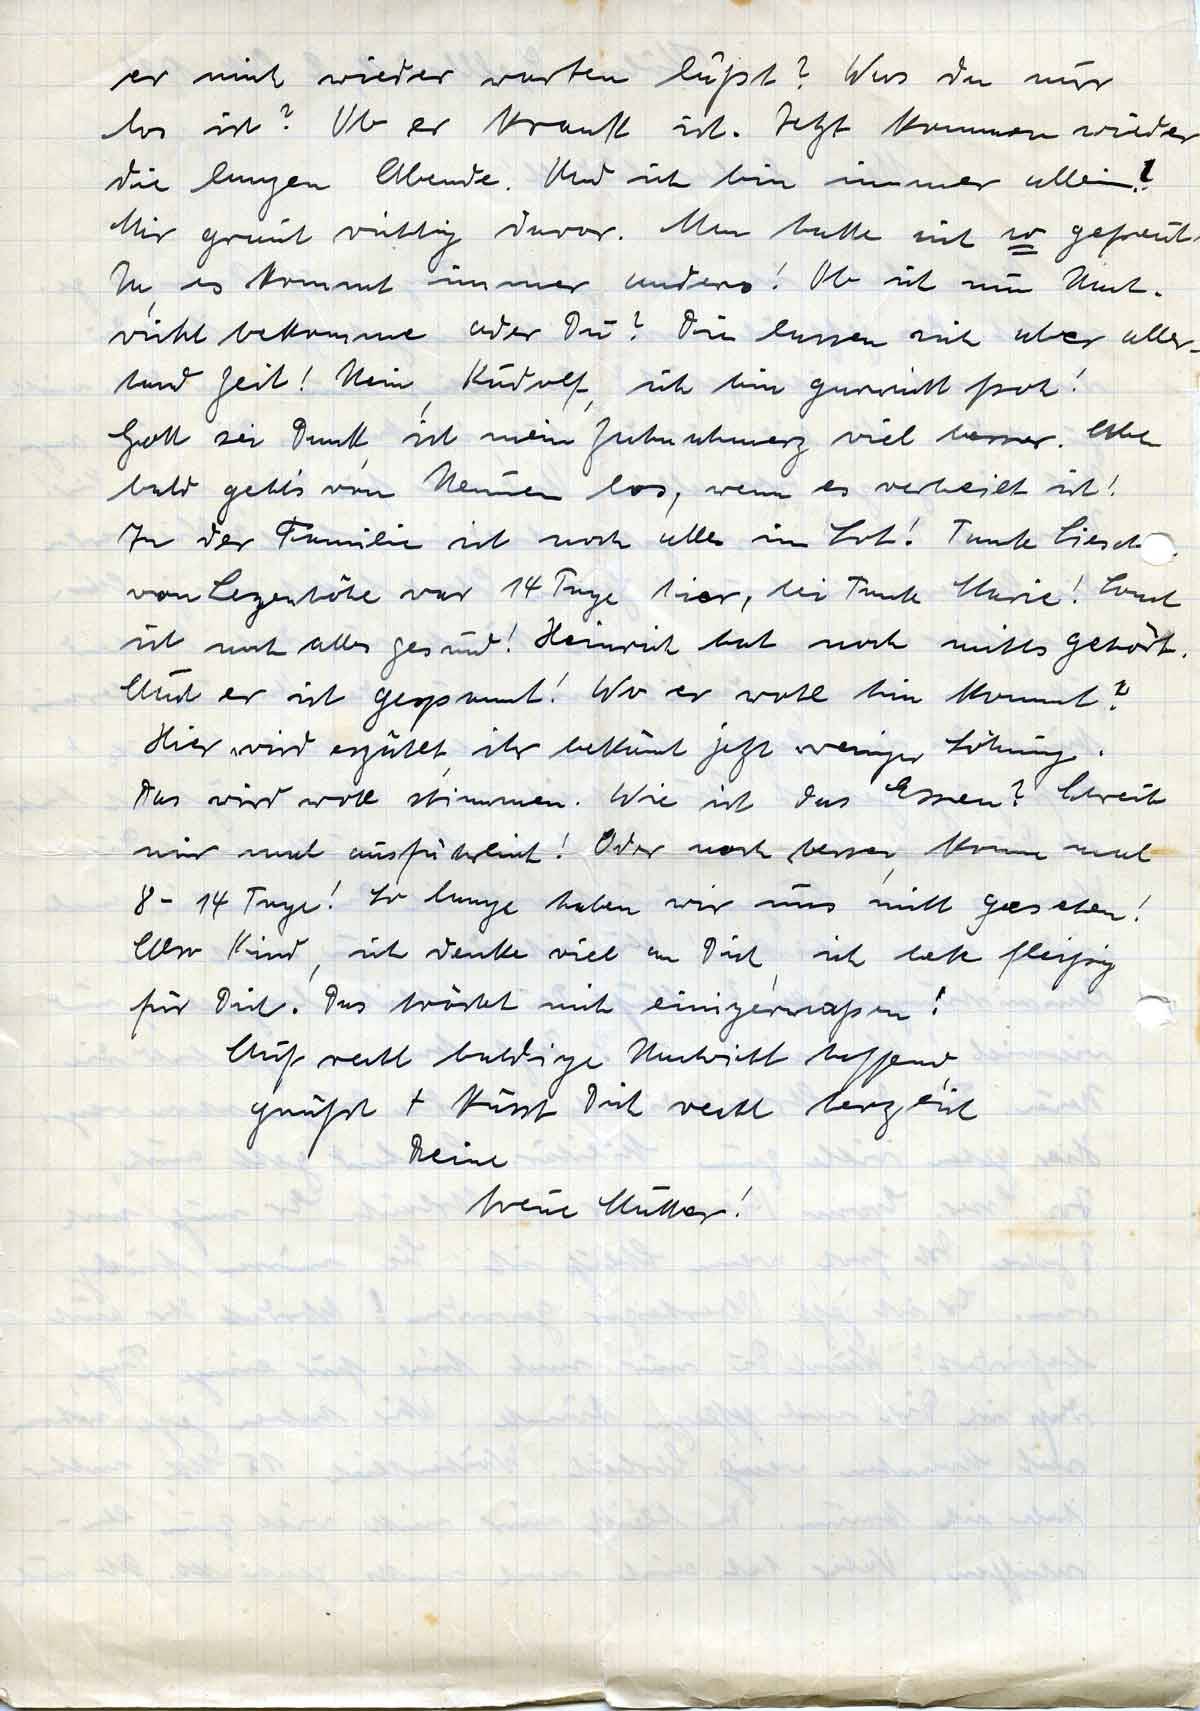 er mich wieder warten läßt? Was da nur
los ist? Ob er krank ist. Jetzt kommen wieder
die langen Abende. Und ich bin immer allein!
Mir graut richtig davor. Man hatte sich so gefreut.
Na, es kommt immer anders! Ob ich nun Nach-
richt bekomme oder Du? Die lassen sich aber aller-
hand Zeit! Nein, Rudolf, ich bin garnicht froh!
Gott sei Dank, ist mein Zahnschmerz viel besser. Aber
bald geht's von Neuem los, wenn es verheilt ist!
In der Familie ist noch alles im Lot! Tante Liesch.
von Legenhöhe war 14 Tage hier, bei Tante Marie! Sonst
ist noch alles gesund! Heinrich hat noch nichts gehört.
Auch er ist gespannt! Wo er wohl hin kommt?
Hier wird erzählt, ihr bekämt jetzt weniger Löhnung.
Das wird wohl stimmen. Wie ist das Essen? Schreib
mir mal ausführlich! Oder noch besser, komm mal
8 - 14 Tage! So lange haben wir uns nicht gesehen!
Also Kind, ich denke viel an Dich, ich bete fleißig
für Dich. Das tröstet mich einigermaßen!
Auf recht baldige Nachricht hoffend,
grüßt + küsst Dich recht herzlich
Deine
treue Mutter!